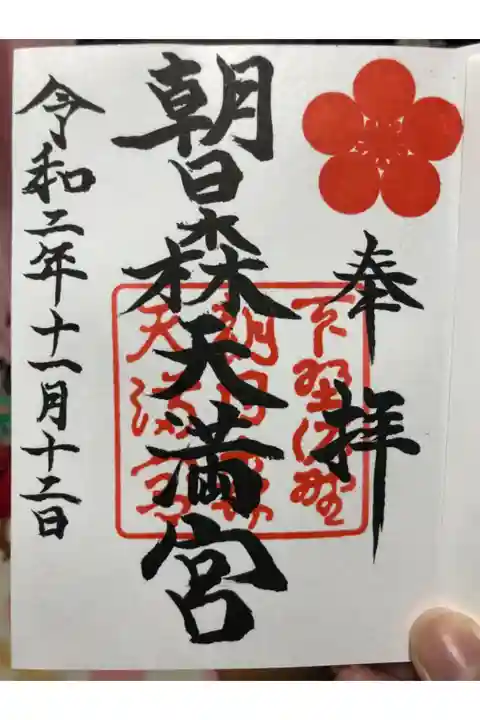 奉拝
朝日森天満宮
令和二年十一月十二日
下野佐野
朝日森
天満宮